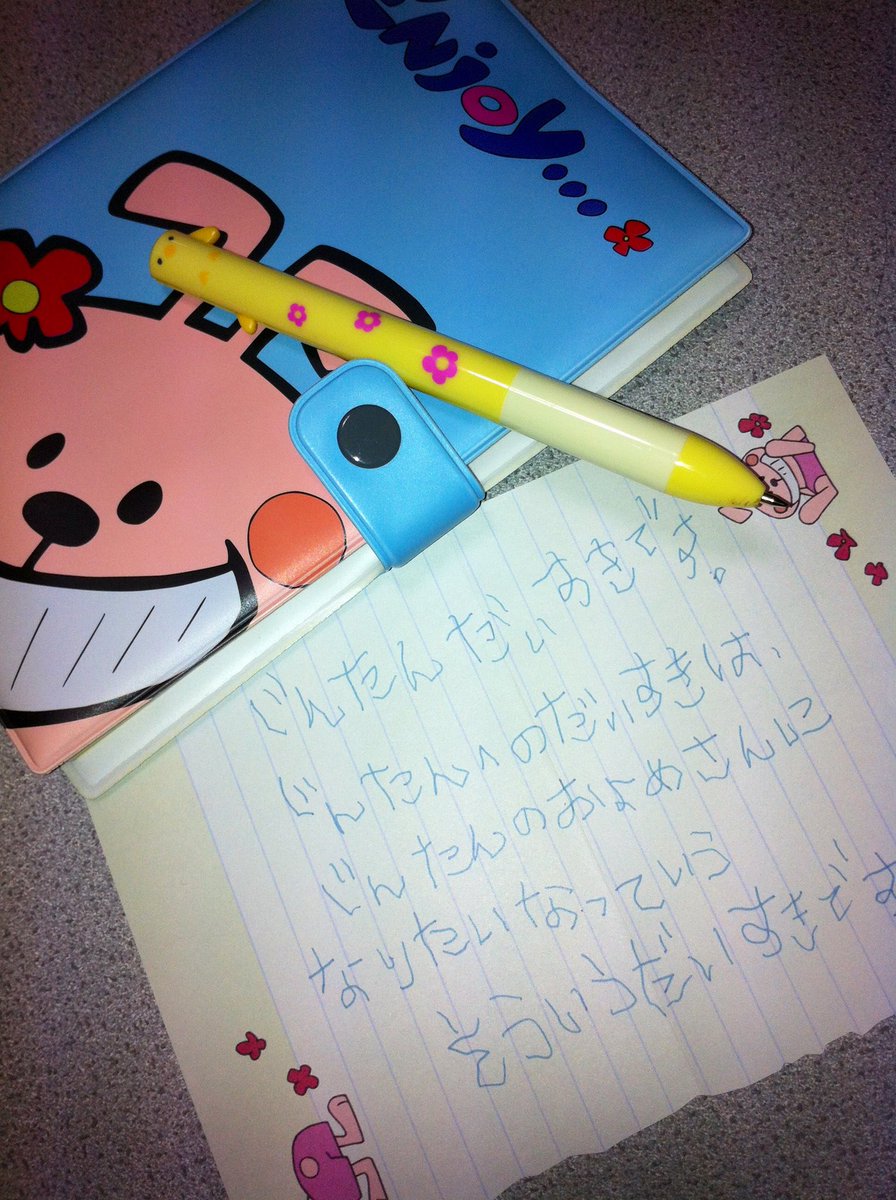 ENjoy...
じんたんだいすきです。
じんたんへのだいすきは、
じんたんのおよめさんに
なりたいなっていう
そういうだいすきです